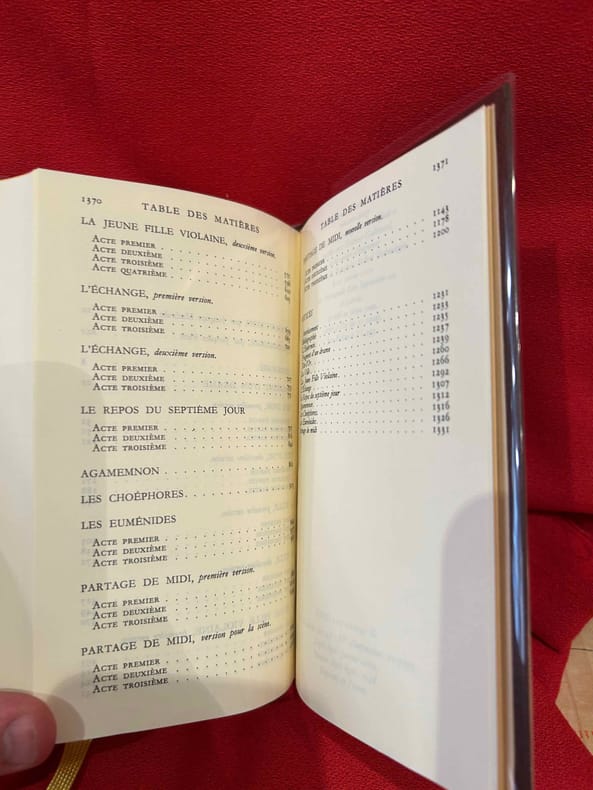 1370
TABLE DES MATIÈRES
LA JEUNE FILLE VIOLAINE, deuxième version.
ACTE PREMIER
ACTE DEUXIÈME
ACTE TROISIÈME
ACTE QUATRIÈME
L'ÉCHANGE, première version.
ACTE PREMIER
ACTE DEUXIÈME
ACTE TROISIÈME
L'ÉCHANGE, deuxième version.
ACTE PREMIER
ACTE DEUXIÈME
ACTE TROISIÈME
LE REPOS DU SEPTIÈME JOUR
ACTE PREMIER
ACTE DEUXIÈME
ACTE TROISIÈME
AGAMEMNON
LES CHOÉPHORES
LES EUMÉNIDES
ACTE PREMIER
ACTE DEUXIÈME
ACTE TROISIÈME
PARTAGE DE MIDI, première version.
ACTE PREMIER
ACTE DEUXIÈME
ACTE TROISIÈME
PARTAGE DE MIDI, version pour la scène.
ACTE PREMIER
ACTE DEUXIÈME
ACTE TROISIÈME
1371
TABLE DES MATIÈRES
DE MIDI, nouvelle version.
1143
1178
1200
1231
1233
1235
1237
d'un drame 1239
1260
Jeune Fille Violaine 1266
1292
Repos du septième jour 1307
1312
1316
1326
de midi 1331